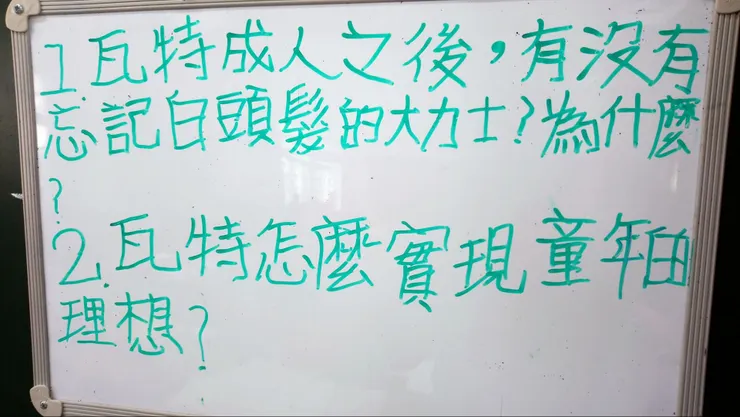 1.瓦特成人之後，有沒有
忘記白頭髮的大力士?為什麼
?
2.瓦特怎麼實現童年的
理想?